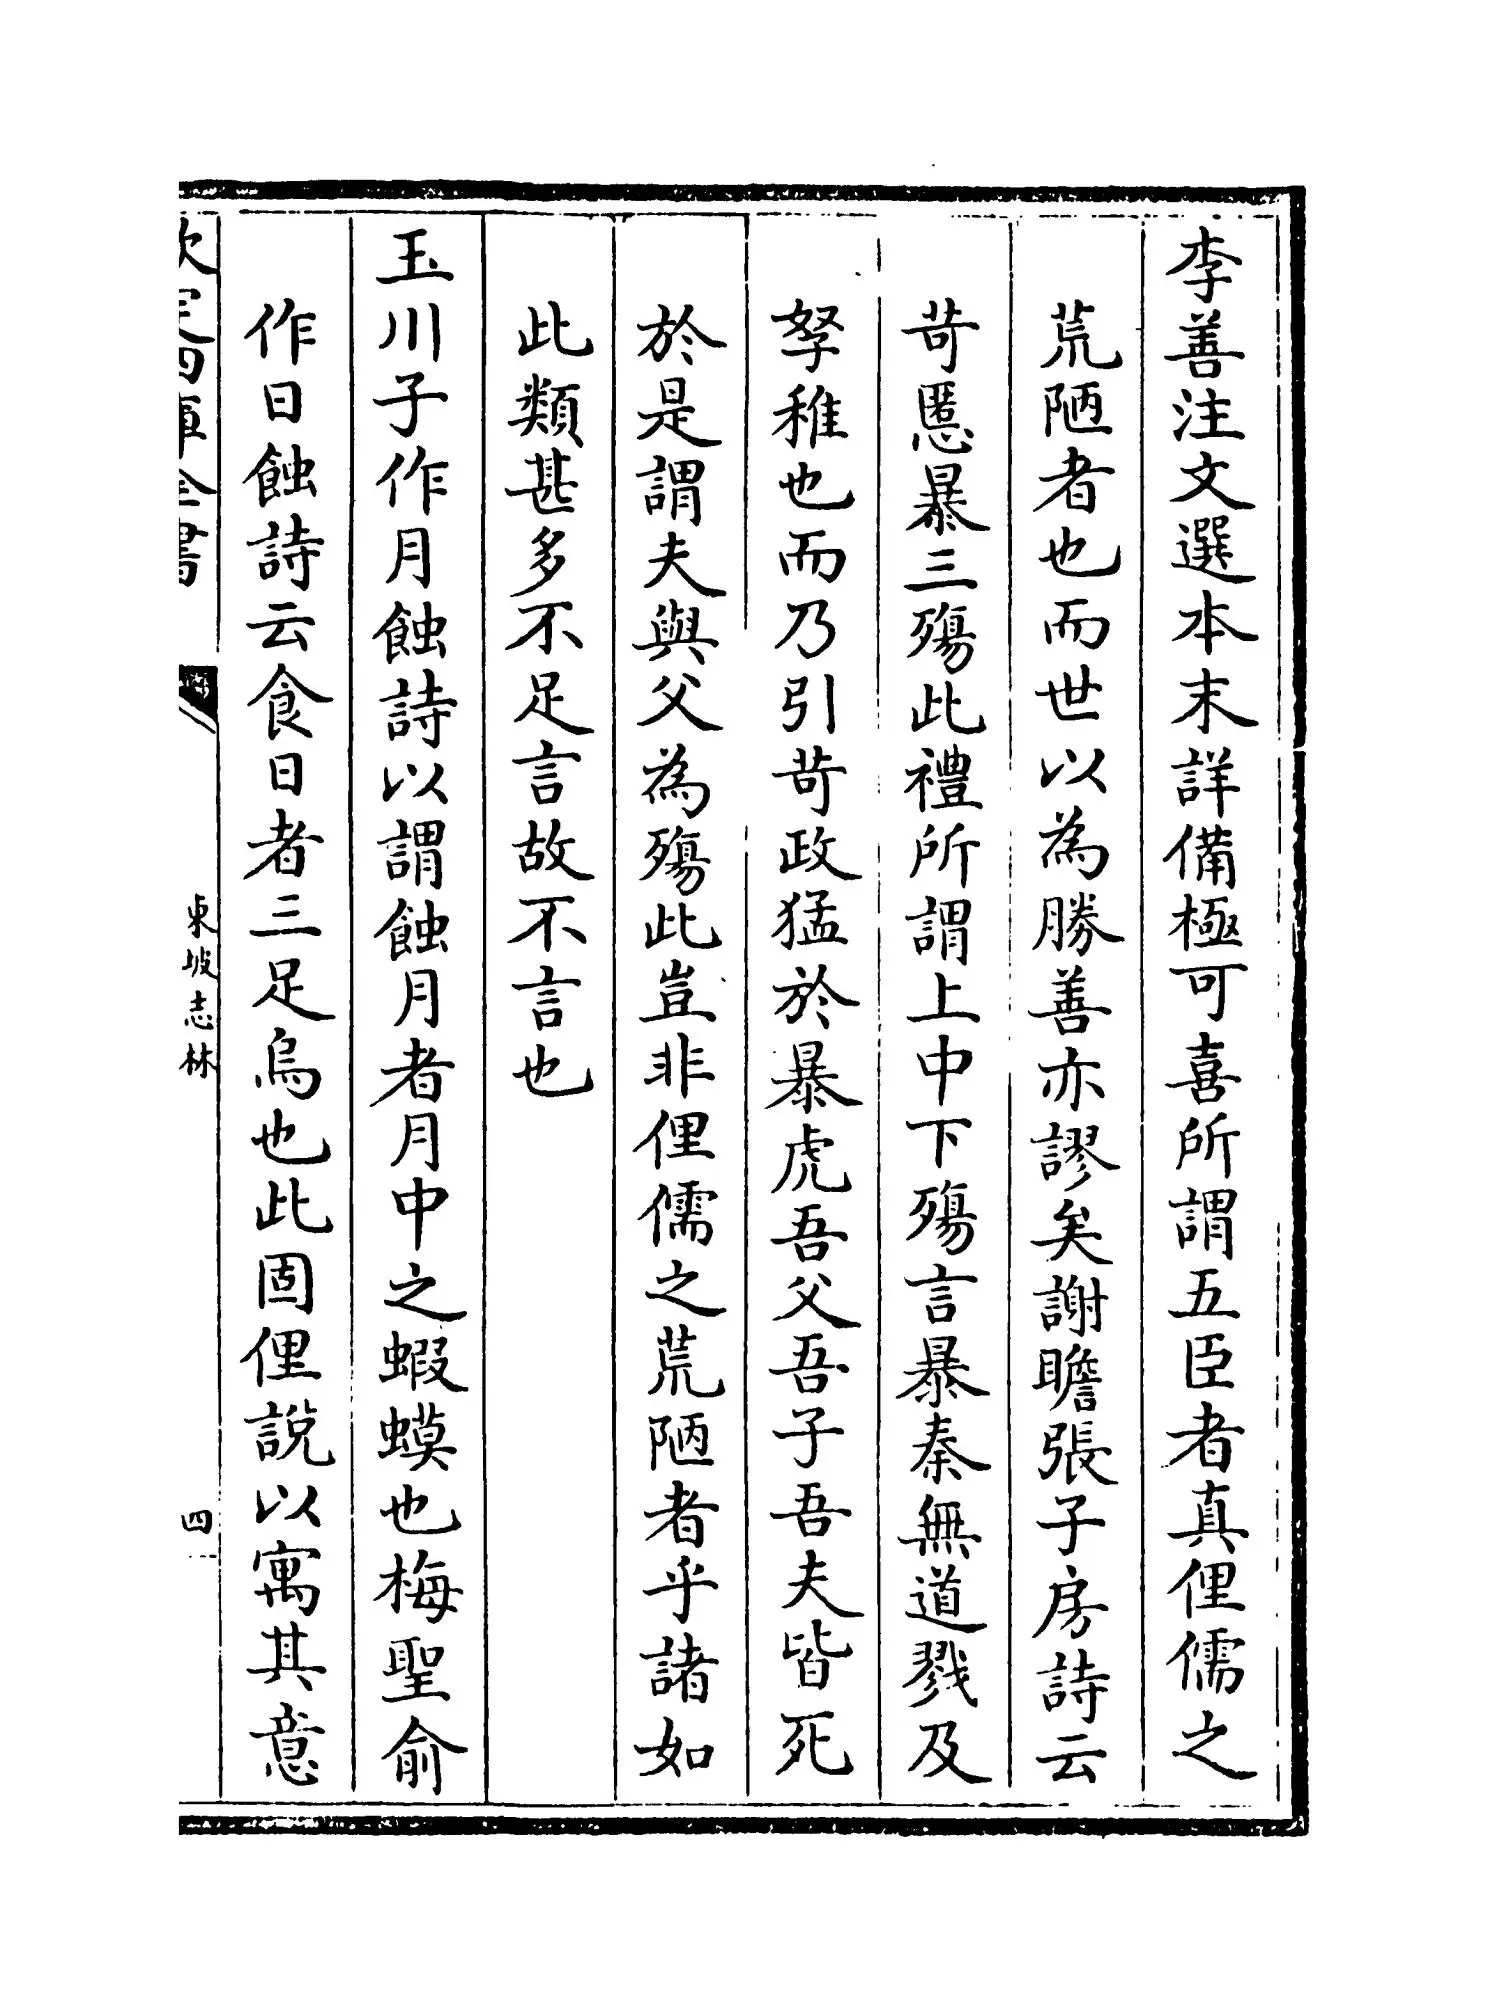 李善注文選本末詳備極可喜所謂五臣者真俚儒之
荒陋者也而世以為勝善亦謬矣謝瞻張子房詩云
苛慝暴三殤此禮所謂上中下殤言暴秦無道戮及
孥稚也而乃引苛政猛於暴虎吾父吾子吾夫皆死
於是謂夫與父為殤此豈非俚儒之荒陋者乎諸如
此類甚多不足言故不言也
玉川子作月蝕詩以謂蝕月者月中之蝦蟆也梅聖俞
作日蝕詩云食日者三足烏也此固俚說以寓其意
欽定四庫全書
東坡志林
四